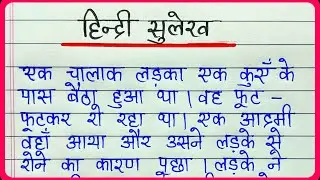 हिन्दी सुलेख
एक चालाक लड़का एक कुएँ के
पास बैठा हुआ था। वह फूट -
फूटकर रो रहा था। एक आदमी
वहाँ आया और उसने लड़के से
रोने का कारण पूछा। लड़के ने